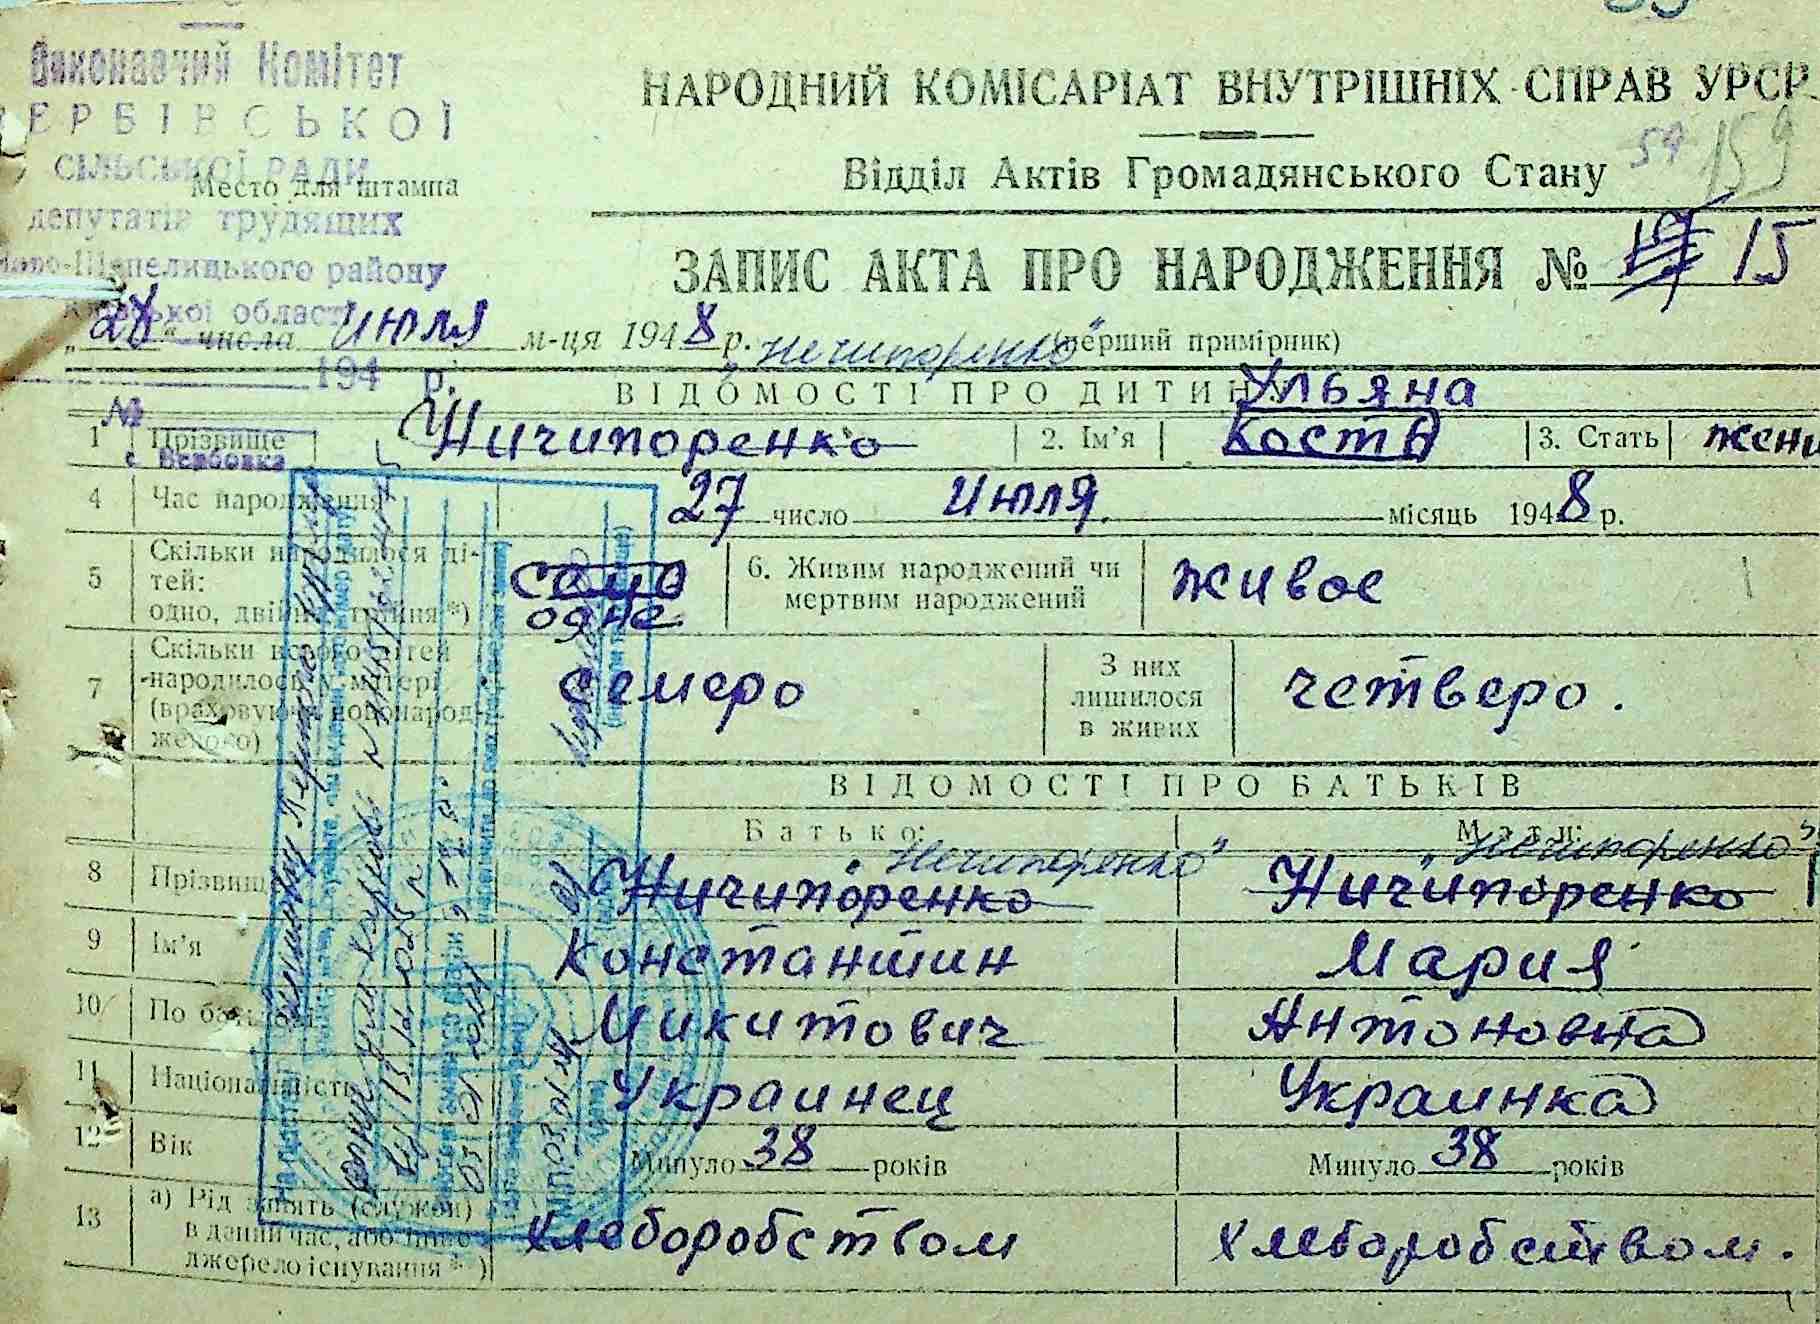 Виконавчий Комітет
ЕРБІВСЬКОЇ
СІЛЬСЬКОЇ РАДИ
депутатів трудящих
Ново-Шепелицького району
Київської області
194 р.
№
с Вербовка
Место для штампа
НАРОДНИЙ КОМІСАРІАТ ВНУТРІШНІХ СПРАВ УРСР.
Відділ Актів Громадянського Стану
57 159
ЗАПИС АКТА ПРО НАРОДЖЕННЯ № 15
„28“ числа Июля м-ця 1948 р. (перший примірник)
"Нечипоренко"
ВІДОМОСТІ ПРО ДИТИНУ
Ульяна
1 Прізвище Ничипоренко 2. Ім'я Кость 3. Стать жени
4 Час народження 27 число Июля. місяць 1948 р.
5 Скільки народилося ді-
тей:
одно, двійня, трійня *) само
одне
6. Живим народжений чи
мертвим народжений живое
7 Скільки всього дітей
народилось у матері
(враховуючи новонарод-
женого) семеро
З них
лишилося
в живих четверо.
ВІДОМОСТІ ПРО БАТЬКІВ
Батько: Мати:
"Нечипоренко" "Нечипоренко"
8 Прізвище Ничипоренко Ничипоренко
9 Ім'я Константин Мария
10 По батькові Микитович Антоновна
11 Національність Украинец Украинка
12 Вік Минуло 38 років Минуло 38 років
13 а) Рід занять (служби)
в даний час, або інше
джерело існування *) Хлеборобством Хлеборобством.